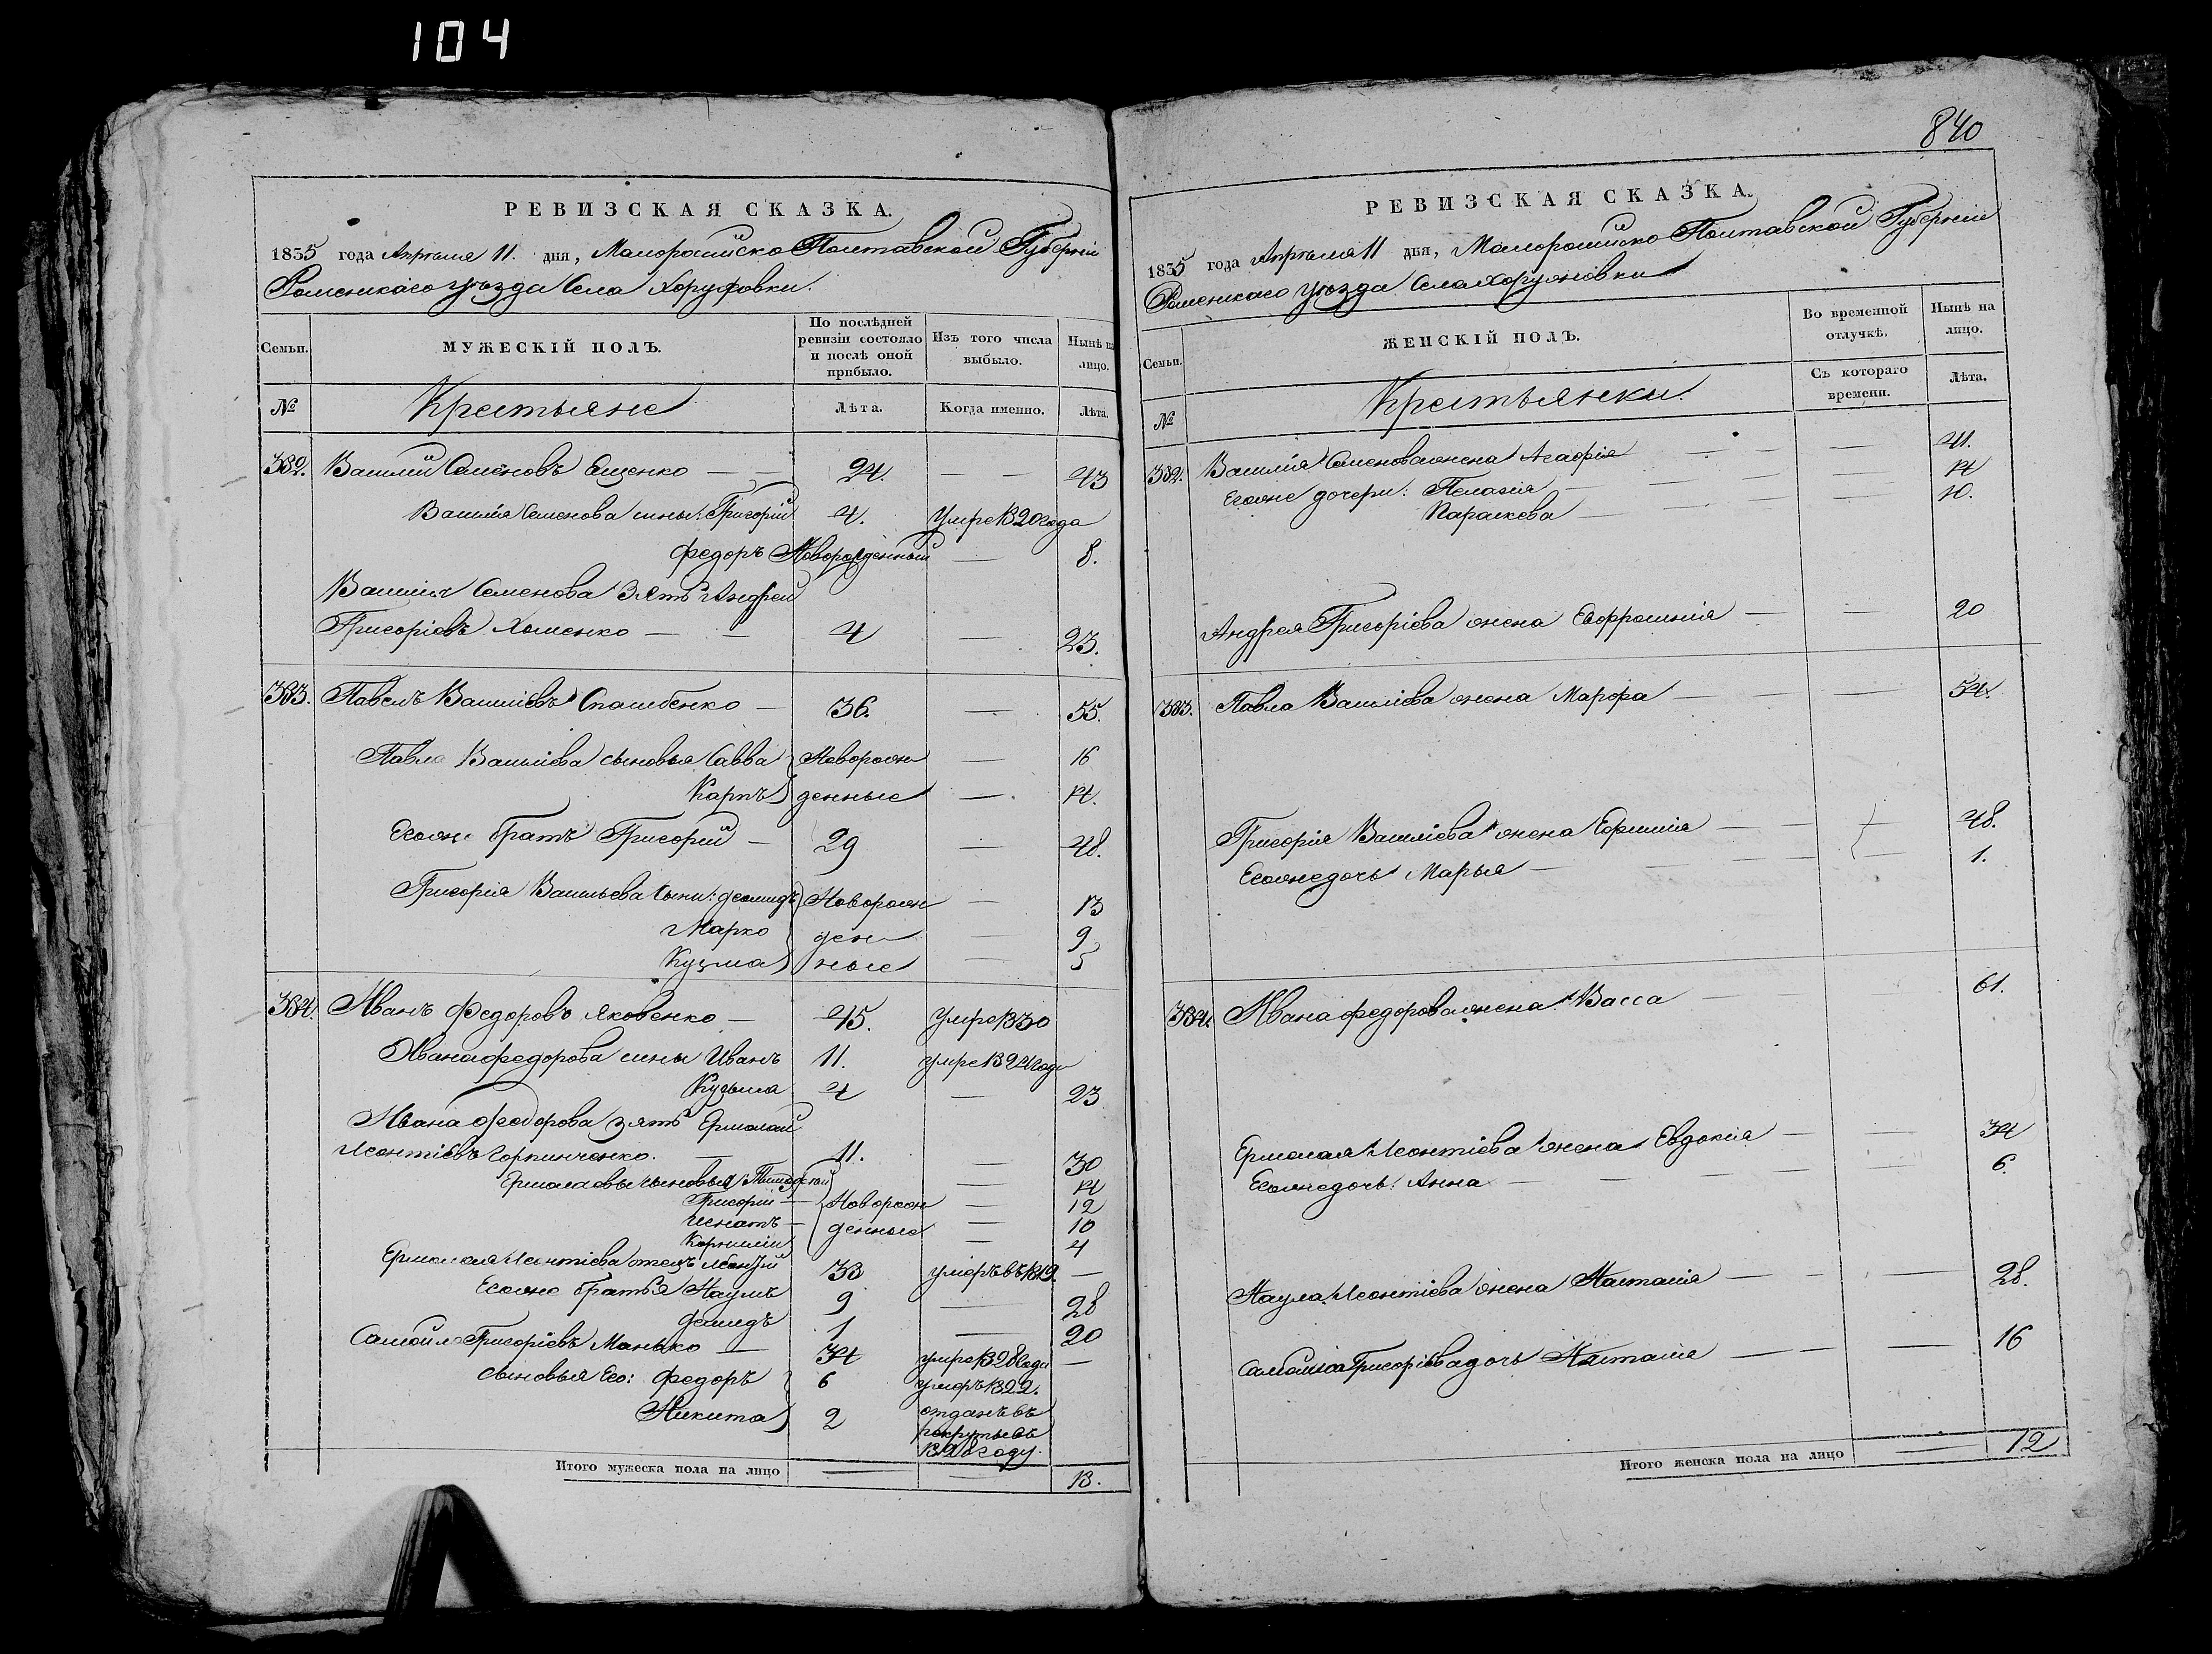 104
РЕВИЗСКАЯ СКАЗКА.
1835 года Апрѣля 11. дня, Малоросийско Полтавской Губерніи
Роменскаго уѣзда Села Хоружовки.
Семьи.
МУЖЕСКІЙ ПОЛЪ.
По послѣдней ревизіи состояло и послѣ оной прибыло.
Изъ того числа выбыло.
Нынѣ на лицо.
№
Крестьяне
Лѣта.
Когда именно.
Лѣта.
382. Василій Семеновъ Ещенко — — 24. — — 43
Василія Семенова сины: Григорій 4. Умре 1820 года
Федоръ Новорожденный — 8.
Василія Семенова Зять Андрей
Григоріевъ Хоменко — — 4 — 23.
383. Павелъ Василіевъ Спасибенко — 36. — 55.
Павла Василіева сыновья Савва Новорож — 16
Карпъ денные — 14.
Егоже братъ Григорій — 29 — 48.
Григорія Васильева сыни: Демидъ Новорож — 13
Марко ден — 9
Кузма ные — 5
384. Иванъ Федоровъ Яковенко — 45. Умре 1830
Ивана Федорова сины Иванъ 11. умре 1824 года
Кузьма 4 — 23
Ивана Федорова зять Ермолай
Леонтіевъ Горпинченко. — 11. — 30
Ермолаевы сыновья Тимофѣй — 14
Григорій — Новорож — 12
Игнатъ — денные — 10
Корнилій — 4
Ермолая Леонтіева отецъ Леонтій 33 умеръ въ 1819. —
Егоже братья Наумъ 9 — 28
Демидъ 1 — 20
Самойло Григоріевъ Манько — 34 умре 1828 года —
сыновья Его: Федоръ 6 умеръ 1822.
Никита 2 отданъ въ
рекруты въ
1828 году.
Итого мужеска пола на лицо — — 18.
840
РЕВИЗСКАЯ СКАЗКА.
1835 года Апрѣля 11 дня, Малоросийско Полтавской Губерніи
Роменскаго уѣзда Села Хоружовки
Семьи.
ЖЕНСКІЙ ПОЛЪ.
Во временной отлучкѣ.
Нынѣ на лицо.
№
Крестьянки.
Съ котораго времени.
Лѣта.
382. Василія Семенова жена Агафія — — — 41.
Егоже дочери: Пелагія — — — 14
Параскева — — — 10.
Андрея Григоріева жена Евфросинія — — 20
383. Павла Василіева жена Марфа — — — 54.
Григорія Василіева жена Ефимія — — — 48.
Егоже дочь Марья — — — 1.
384. Ивана Федорова жена Васса — — 61.
Ермолая Леонтіева жена Евдокія — — 34
Егоже дочь: Анна — — — 6.
Наума Леонтіева жена Настасія — — — 28.
Самойла Григоріева дочь Настасія — — — 16
Итого женска пола на лицо — 12